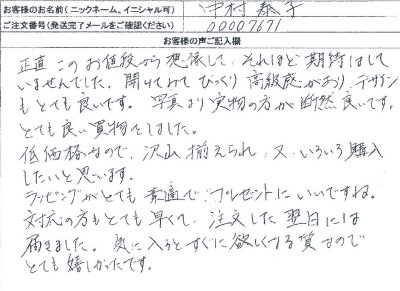 お客様のお名前(ニックネーム、イニシャル可) 中村 恭子
ご注文番号(発送完了メールをご確認ください) 00007671
お客様の声ご記入欄
正直このお値段から想像して、それほど期待はして
いませんでした。開けてみてびっくり高級感があり、デザイン
もとても良いです。写真より実物の方が断然良いです。
とても良い買物をしました。
低価格なので、沢山揃えられ、又、いろいろ購入
したいと思います。
ラッピングがとても素適で、プレゼントにいいですね。
対応の方もとても早くて、注文した翌日には
届きました。気に入るとすぐに欲しくなる質なので
とても嬉しかったです。